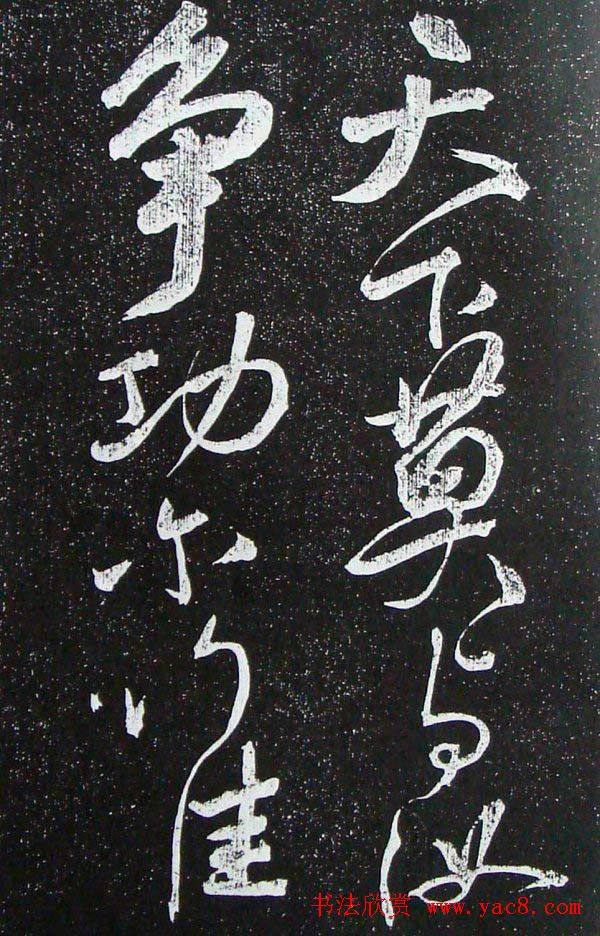 天下莫与汝
争功尔惟
书法欣赏 www.yac8.com